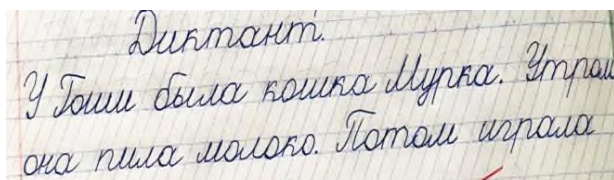 Диктант.
У Гоши была кошка Мурка. Утром
она пила молоко. Потом играла